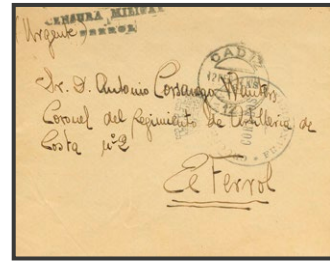 CENSURA MILITAR
FERROL
(Urgente)
CADIZ
Sr. D. Antonio
Coronel del Regimiento de Artilleria de
Costa nº2
El Ferrol